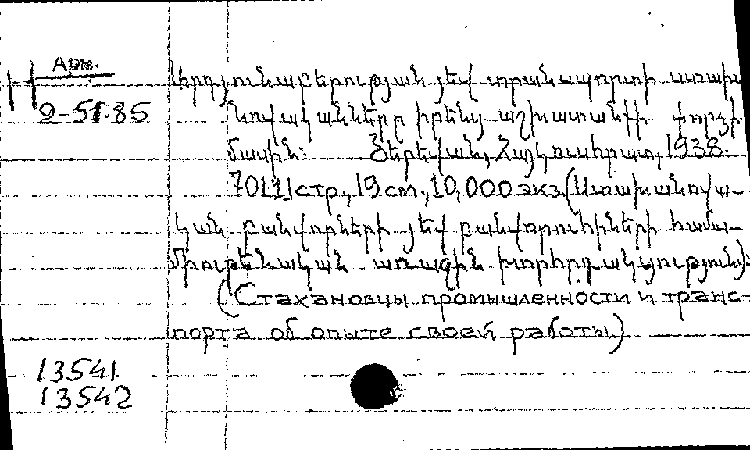 Арм.
2-51.85
Արդյունաբերության յեվ տրանսպորտի ստախա
նովականները իրենց աշխատանքի փորձի
մասին: Յերեվան, Հայկուսհրատ, 1938.
70[1] стр., 19 cm., 10,000 экз. (Ստախանովա-
կան բանվորների յեվ բանվորուհիների համա-
միութենական առաջին խորհրդակցություն):
(Стахановцы промышленности и транс-
порта об опыте своей работы)
13541
13542